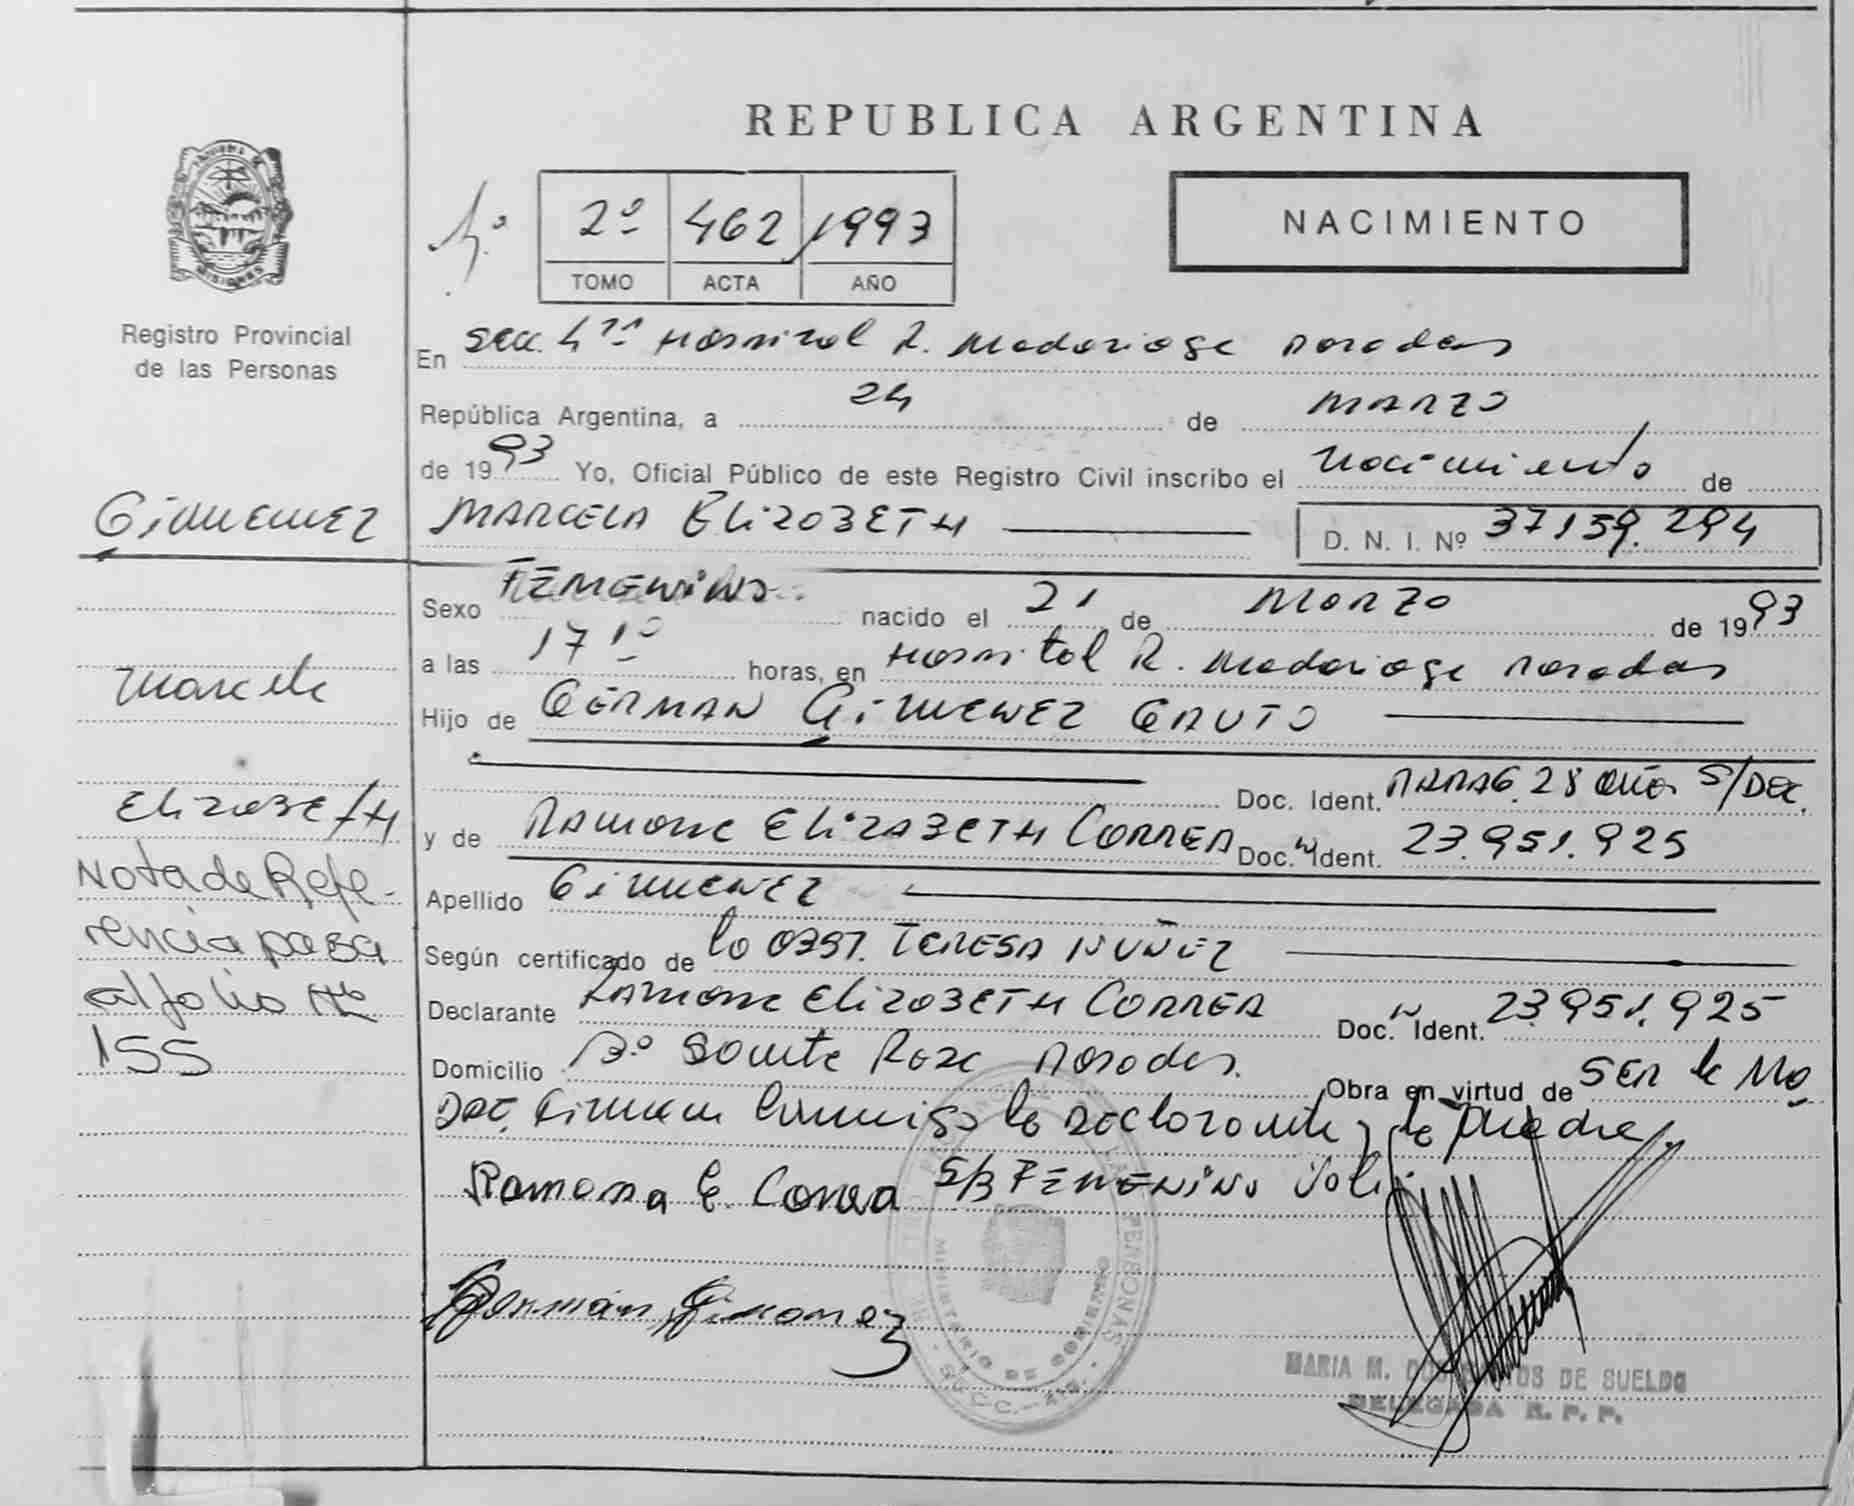 REPUBLICA ARGENTINA
PROVINCIA DE MISIONES
Registro Provincial
de las Personas
2º 462 1993
TOMO ACTA AÑO
NACIMIENTO
En Secc. 4ta Hospital R. Madariaga Posadas
República Argentina, a 24 de MARZO
de 1993 Yo, Oficial Público de este Registro Civil inscribo el Nacimiento de
GIMENEZ MARCELA ELIZABETH D. N. I. Nº 37159.294
Sexo FEMENINO nacido el 21 de MARZO de 1993
a las 17 10 horas, en Hospital R. Madariaga Posadas
Marcela
Hijo de GERMAN GIMENEZ GAUTO
Doc. Ident. PARAG. 28 años S/DOC.
Elizabeth
y de RAMONA ELIZABETH CORREA Doc. Ident. 23.951.925
Nota de Refe-
rencia pasa
al folio Nº
155
Apellido GIMENEZ
Según certificado de la OBST. TERESA NUÑEZ
Declarante RAMONA ELIZABETH CORREA Doc. Ident. 23.951.925
Domicilio Bº Santa Rosa Posadas. Obra en virtud de SER la MA
DRE. Firman Conmigo la Declarante y el Padre.
Ramona E. Correa S/B FEMENINO Vale
Germán Gimenez
MINISTERIO DE GOBIERNO
SECC. 4ta.
MARIA M. DOS SANTOS DE SUELDO
DELEGADA R. P. P.